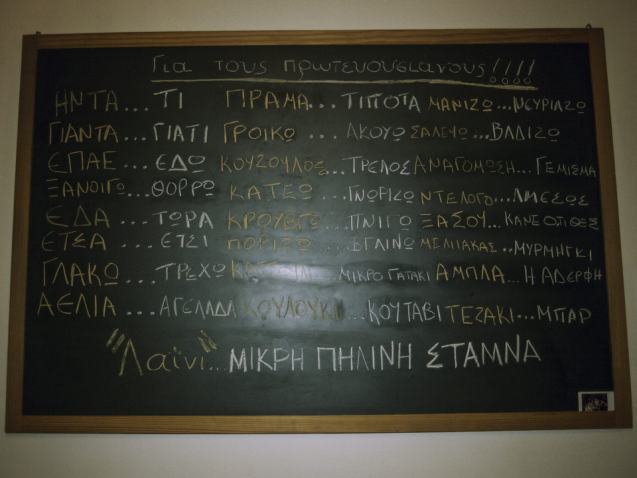 Για τους πρωτευουσιάνους!!!!
ΗΝΤΑ...ΤΙ ΠΡΑΜΑ...ΤΙΠΟΤΑ ΜΑΝΙΖΩ...ΝΕΥΡΙΑΖΩ
ΓΙΑΝΤΑ...ΓΙΑΤΙ ΓΡΟΙΚΩ...ΑΚΟΥΩ ΣΑΛΕΥΩ...ΒΑΔΙΖΩ
ΕΠΑΕ...ΕΔΩ ΚΟΥΖΟΥΛΟΣ...ΤΡΕΛΟΣ ΑΝΑΓΟΜΩΣΗ...ΓΕΜΙΣΜΑ
ΞΑΝΟΙΓΩ...ΘΟΡΡΩ ΚΑΤΕΩ...ΓΝΩΡΙΖΩ ΝΤΕΛΟΓΟ...ΑΜΕΣΩΣ
ΕΔΑ...ΤΩΡΑ ΚΡΟΥΒΓΩ...ΠΝΙΓΩ ΞΑ ΣΟΥ...ΚΑΝΕ ΟΤΙ ΘΕΣ
ΕΤΣΑ...ΕΤΣΙ ΠΟΡΙΖΩ...ΒΓΑΙΝΩ ΜΕΛΙΑΚΑΣ...ΜΥΡΜΗΓΚΙ
ΓΛΑΚΩ...ΤΡΕΧΩ ...ΜΙΚΡΟ ΓΑΤΑΚΙ ΑΜΠΛΑ...Η ΑΔΕΡΦΗ
ΑΕΛΙΑ...ΑΓΕΛΑΔΑ ΚΟΥΛΟΥΚΙ...ΚΟΥΤΑΒΙ ΤΕΖΑΚΙ...ΜΠΑΡ
"Λαϊνι"...ΜΙΚΡΗ ΠΗΛΙΝΗ ΣΤΑΜΝΑ